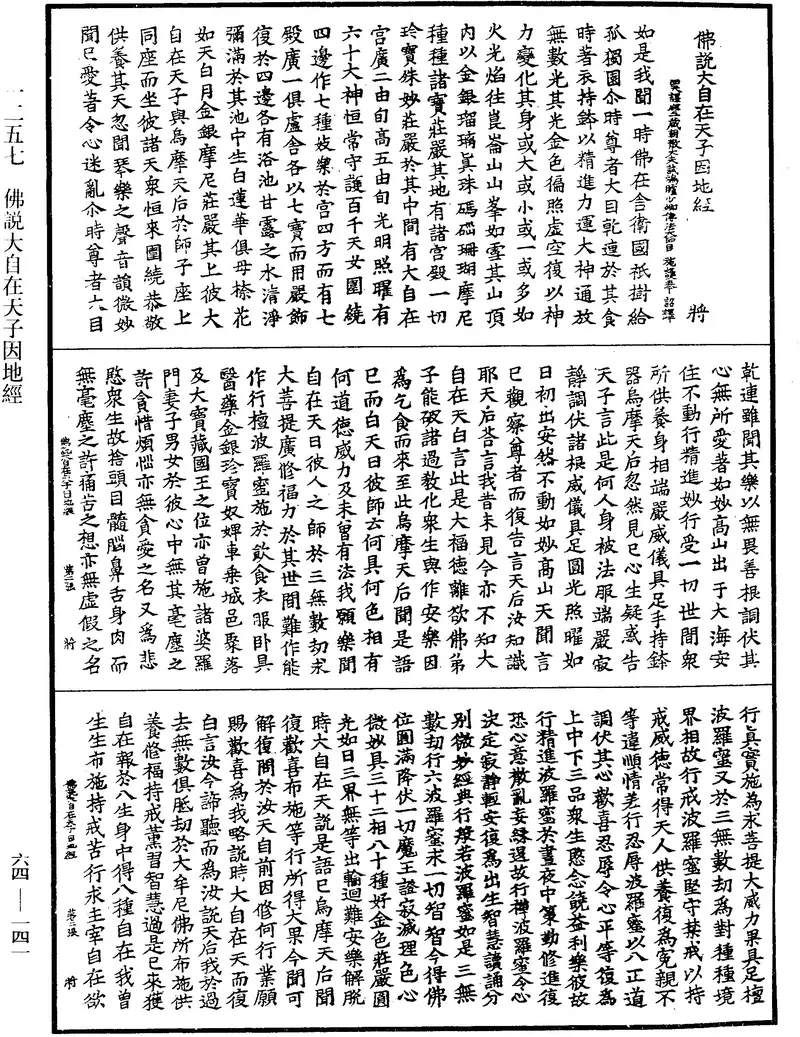 佛說大自在天子因地經
將
西天譯經三藏朝散大夫試鴻臚少卿傳法大師臣施護奉 詔譯
如是我聞一時佛在舍衛國祇樹給
孤獨園尒時尊者大目乾連於其食
時著衣持鉢以精進力運大神通放
無數光其光金色徧照虛空復以神
力變化其身或大或小或一或多如
火光焰往崑崙山山峯如雪其山頂
內以金銀瑠璃真珠碼碯珊瑚摩尼
種種諸寶莊嚴其地有諸宮殿一切
玲寶殊妙莊嚴於其中間有大自在
宮廣二由旬高五由旬光明照曜有
六十大神恒常守護百千天女圍繞
四邊作七種妓樂於宮四方而有七
殿廣一俱盧舍各以七寶而用嚴飾
復於四邊各有浴池甘露之水清淨
彌滿於其池中生白蓮華俱母捺花
如天白月金銀摩尼莊嚴其上彼大
自在天子與烏摩天后於師子座上
同座而坐彼諸天衆恒來圍繞恭敬
供養其天忽聞琴樂之聲音韻微妙
聞已愛著令心迷亂尒時尊者大目
乾連雖聞其樂以無畏善根調伏其
心無所愛著如妙高山出于大海安
住不動行精進妙行受一切世間衆
所供養身相端嚴威儀具足手持鉢
器烏摩天后忽然見已心生疑惑告
天子言此是何人身被法服端嚴寂
靜調伏諸根威儀具足圓光照曜如
日初出安然不動如妙高山天聞言
已觀察尊者而復告言天后汝知識
耶天后荅言我昔未見今亦不知大
自在天白言此是大福德離欲佛弟
子能破諸過教化衆生與作安樂因
為乞食而來至此烏摩天后聞是語
已而白天曰彼師云何具何色相有
何道德威力及未曾有法我願樂聞
自在天曰彼人之師於三無數劫求
大菩提廣修福力於其世間難作能
作行檀波羅蜜施於飲食衣服卧具
醫藥金銀珍寶奴婢車乘城邑聚落
及大寶藏國王之位亦曾施諸婆羅
門妻子男女於彼心中無其毫塵之
許貪惜煩惱亦無貪愛之名又為悲
愍衆生故捨頭目髓腦鼻舌身肉而
無毫塵之許痛苦之想亦無虛假之名
佛說大自在天子因地經 第二張 將
行真實施為求菩提大威力果具足檀
波羅蜜又於三無數劫為對種種境
界相故行戒波羅蜜堅守禁戒以持
戒威德常得天人供養復為寃親不
等違順情差行忍辱波羅蜜以八正道
調伏其心歡喜忍辱令心平等復為
上中下三品衆生愍念饒益利樂彼故
行精進波羅蜜於晝夜中策勤修進復
恐心意散亂妄緣過故行禪波羅蜜令心
決定寂靜輕安復為出生智慧讀誦分
別微妙經典行般若波羅蜜如是三無
數劫行六波羅蜜求一切智智今得佛
位圓滿降伏一切魔王證寂滅理色心
微妙具三十二相八十種好金色莊嚴圓
光如日三界無等出輪迴難安樂解脫
時大自在天說是語已烏摩天后聞
復歡喜布施等行所得大果今聞可
解復問於汝天自前因修何行業願
賜歡喜為我略說時大自在天而復
白言汝今諦聽而為汝說天后我於過
去無數俱胝劫於大牟尼佛所布施供
養修福持戒薰習智慧過是已來獲
自在報於八生身中得八種自在我曾
生生布施持戒苦行求主宰自在欲
佛說大自在天子因地經 第三張 將
一二五七 佛說大自在天子因地經
六四——一四一